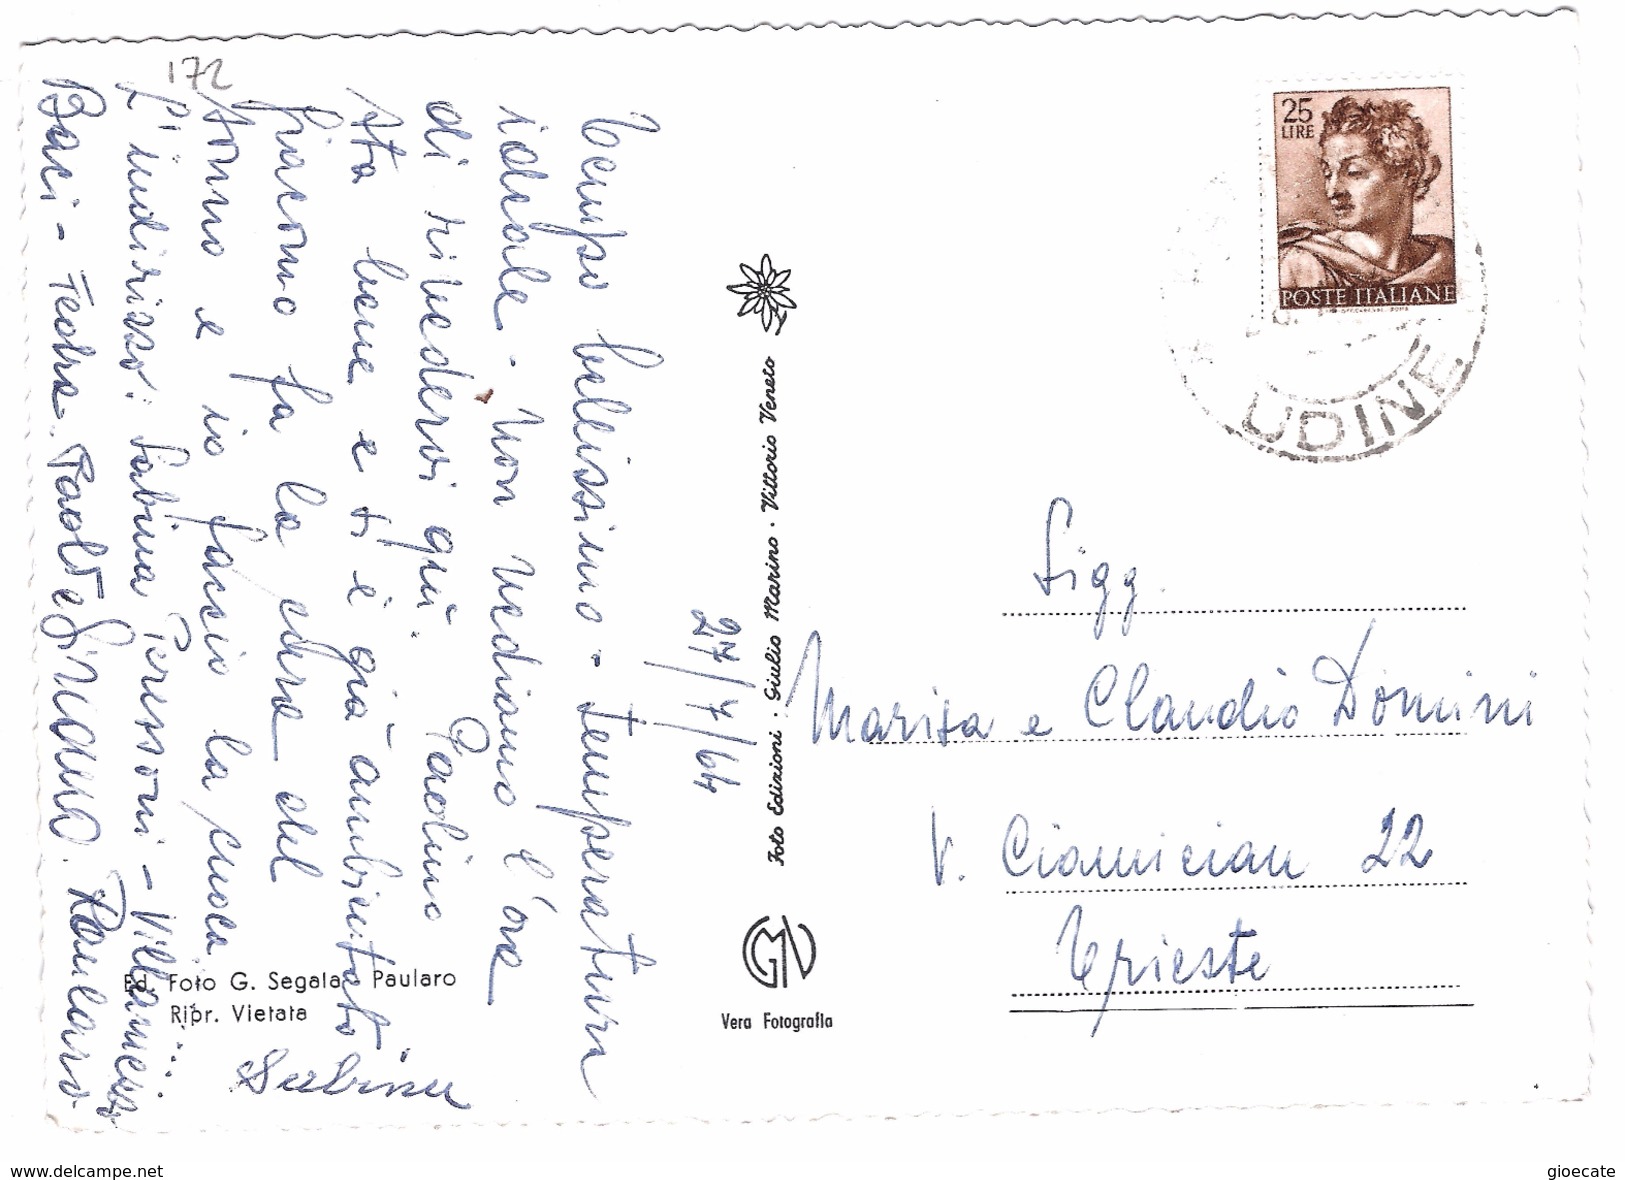 172
27/7/64
Tempo bellissimo - temperatura
ideale - non vediamo l'ora
di rivedervi qui. Paolino
sta bene e si è già ambientato.
Giacomo fa la cura del
sonno e io faccio la cuoca...
L'indirizzo: Sabina Peressoni - Villamezzo
Baci - Fedra. Paolo e Giacomo. Paularo
Sabina
Ed. Foto G. Segala - Paularo
Ripr. Vietata
Foto Edizioni - Giulio Marino - Vittorio Veneto
GMV
Vera Fotografia
25
LIRE
POSTE ITALIANE
UDINE
Sigg.
Marisa e Claudio Domini
V. Ciamician 22
Trieste
www.delcampe.net
gioecate